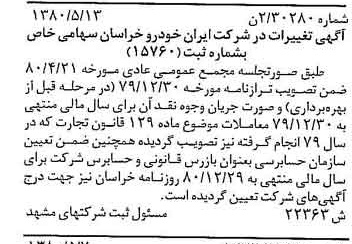 شماره ۲/۳۰۲۸۰ن ۱۳۸۰/۵/۱۳
آگهی تغییرات در شرکت ایران خودرو خراسان سهامی خاص
بشماره ثبت (۱۵۷۶۰)
طبق صورتجلسه مجمع عمومی عادی مورخه ۸۰/۴/۲۱
ضمن تصویب ترازنامه مورخه ۷۹/۱۲/۳۰ (در مرحله قبل از
بهره‌برداری) و صورت جریان وجوه نقد آن برای سال مالی منتهی
به ۷۹/۱۲/۳۰ معاملات موضوع ماده ۱۲۹ قانون تجارت که در
سال ۷۹ انجام گرفته نیز تصویب گردیده همچنین ضمن تعیین
سازمان حسابرسی بعنوان بازرس قانونی و حسابرس شرکت برای
سال مالی منتهی به ۸۰/۱۲/۲۹ روزنامه خراسان نیز جهت درج
آگهی‌های شرکت تعیین گردیده است.
ش ۲۲۳۶۳ مسئول ثبت شرکتهای مشهد